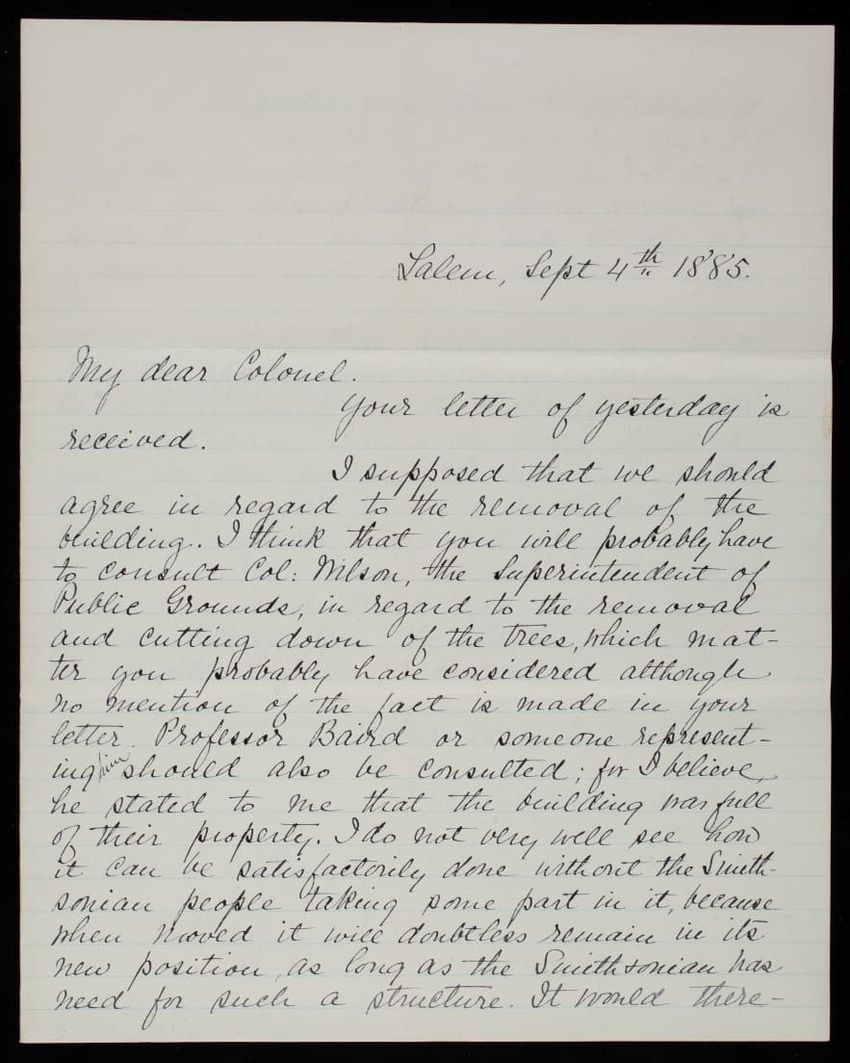 Salem, Sept 4th 1885.
My dear Colonel.
Your letter of yesterday is
received.
I supposed that we should
agree in regard to the removal of the
building. I think that you will probably have
to consult Col: Wilson, the Superintendent of
Public Grounds, in regard to the removal
and cutting down of the trees, which mat-
ter you probably have considered although
no mention of the fact is made in your
letter. Professor Baird or someone represent-
ing him should also be consulted; for I believe
he stated to me that the building was full
of their property. I do not very well see how
it can be satisfactorily done without the Smith-
sonian people taking some part in it, because
when moved it will doubtless remain in its
new position as long as the Smithsonian has
need for such a structure. It would there-